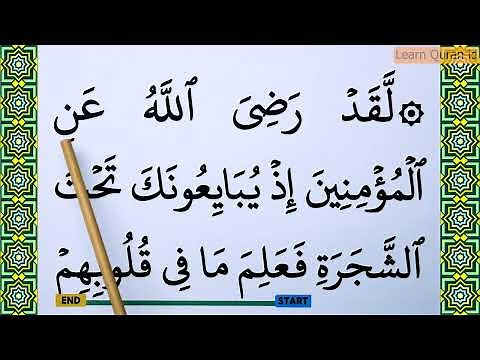 Learn Quran id
۞ لَّقَدۡ رَضِيَ ٱللَّهُ عَنِ
ٱلۡمُؤۡمِنِينَ إِذۡ يُبَايِعُونَكَ تَحۡتَ
ٱلشَّجَرَةِ فَعَلِمَ مَا فِي قُلُوبِهِمۡ
END START